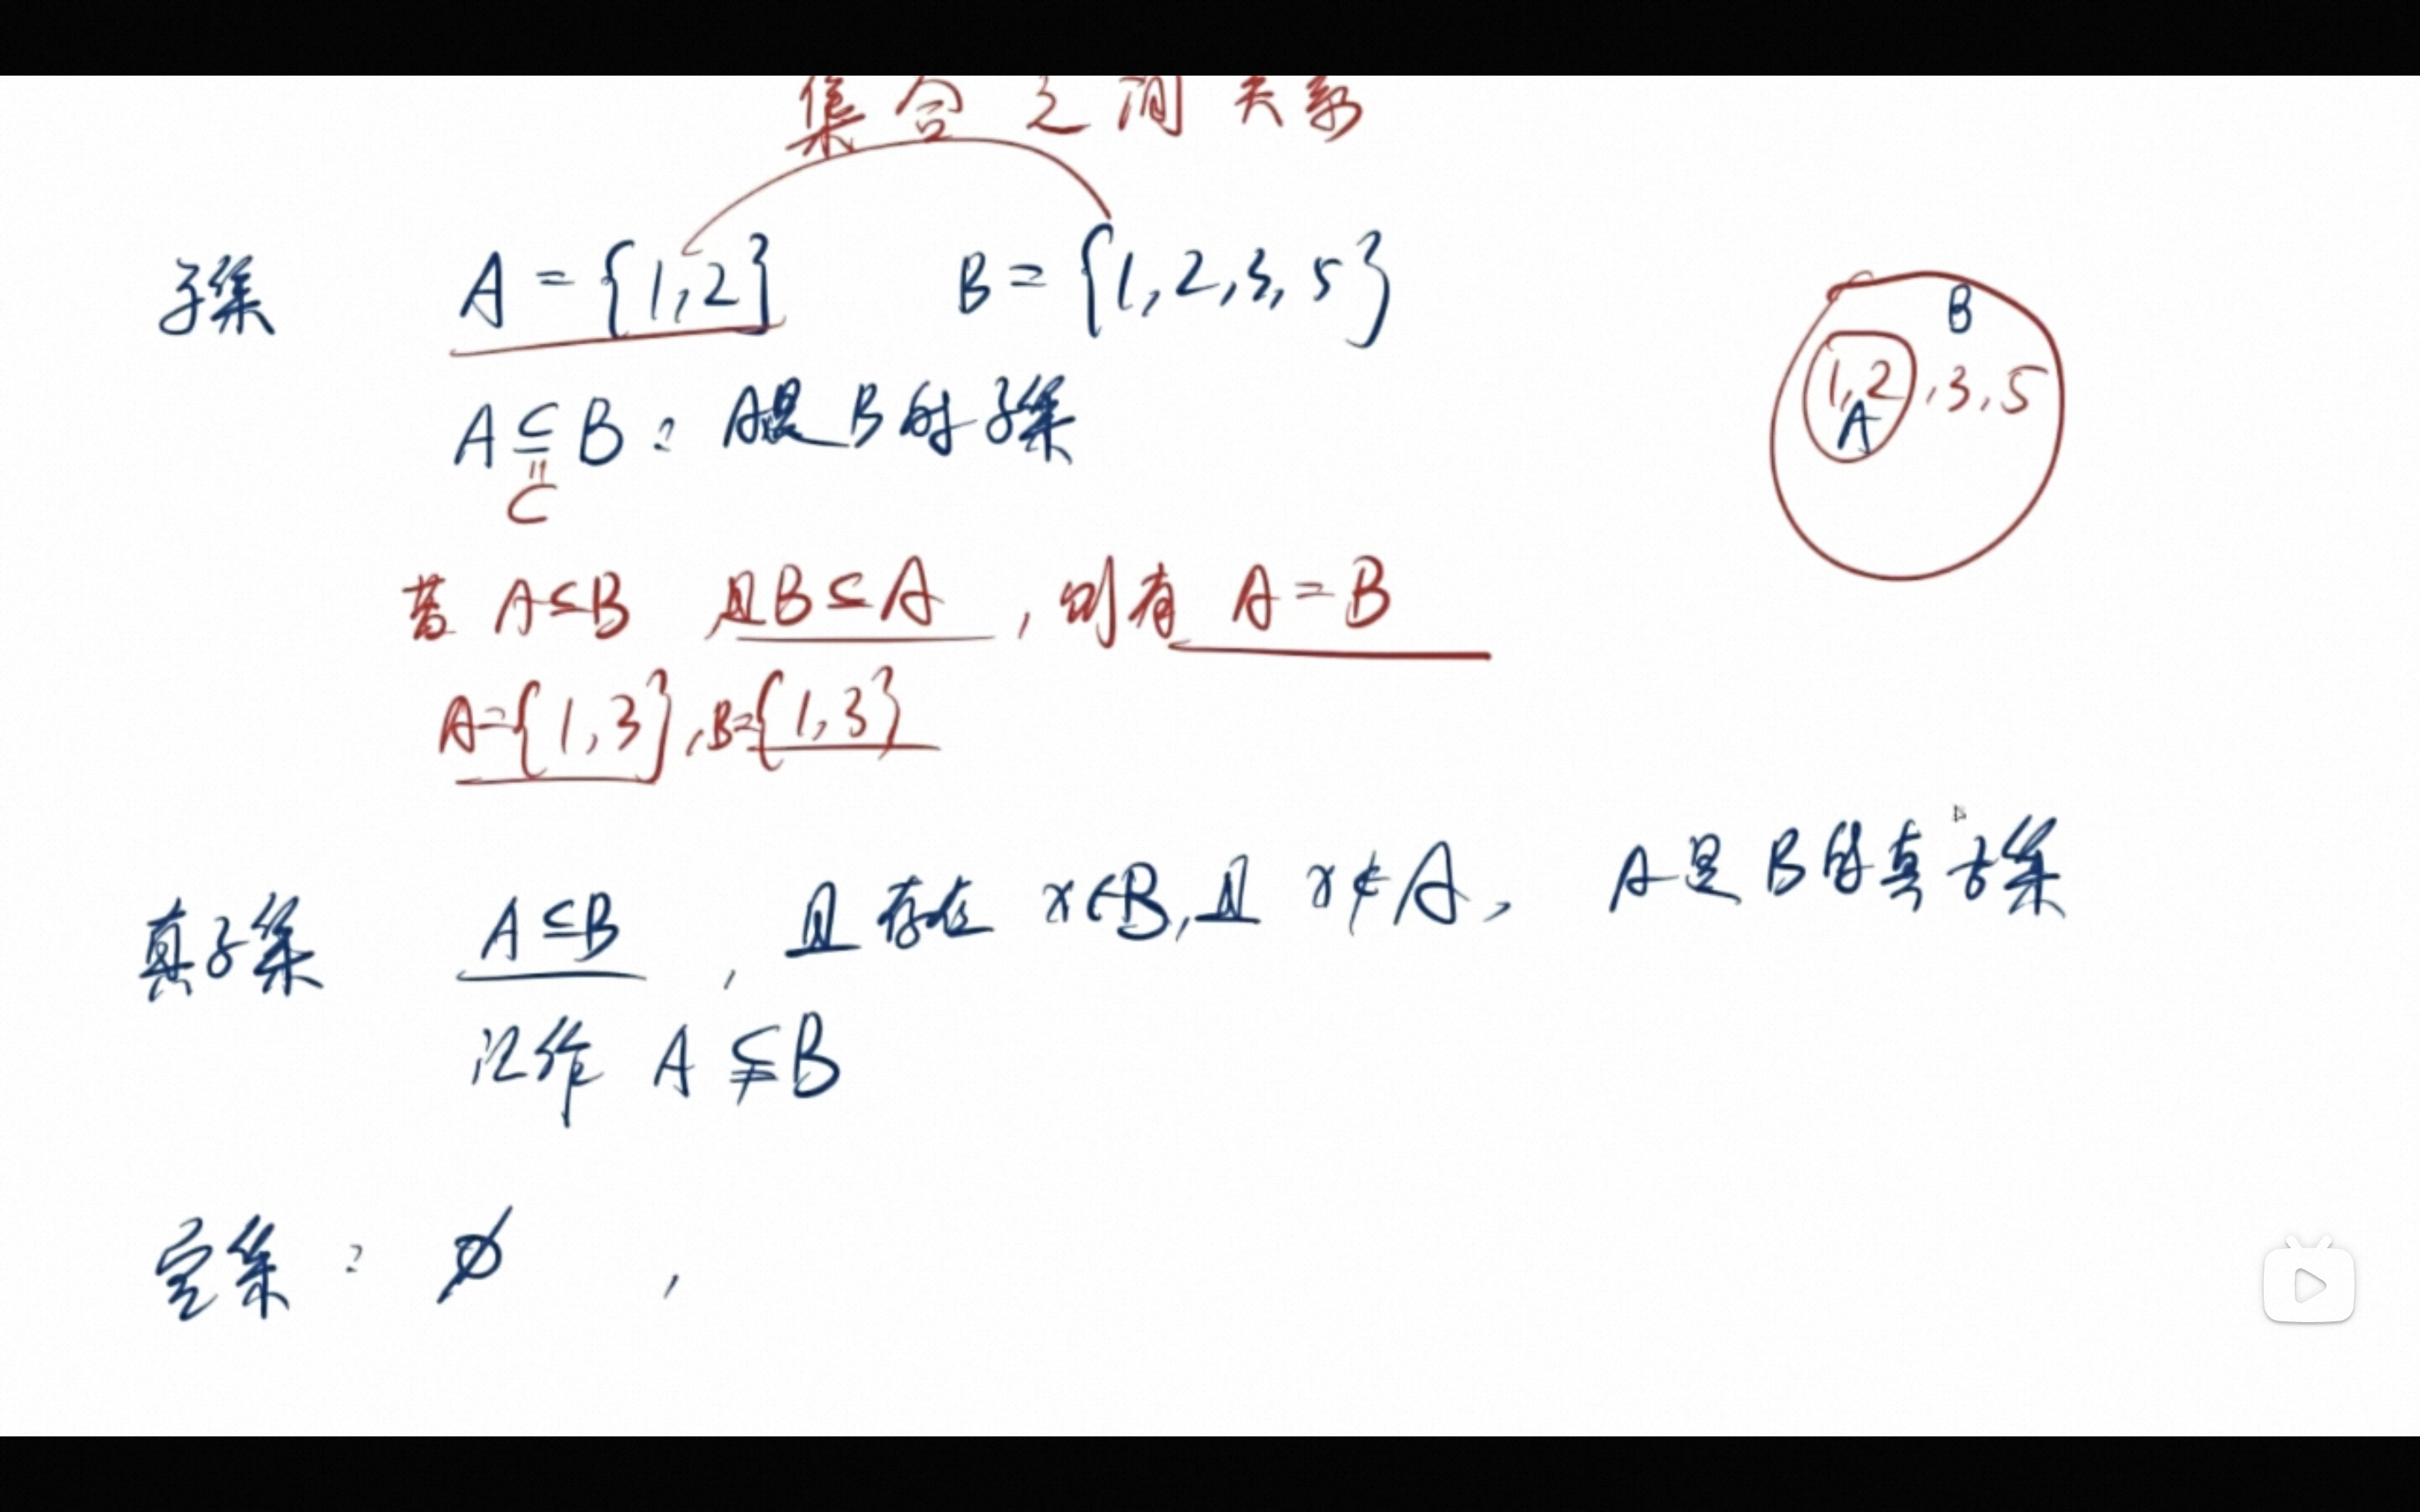 集合之间关系
子集 A = {1,2} B = {1,2,3,5}
B
1,2,3,5
A
A ⊆ B : A是B的子集
=
⊂
若 A⊆B 且B⊆A , 则有 A=B
A={1,3},B={1,3}
真子集 A⊆B , 且存在 x∈B,且 x∉A, A是B的真子集
记作 A ⊊ B
空集: ∅ ,